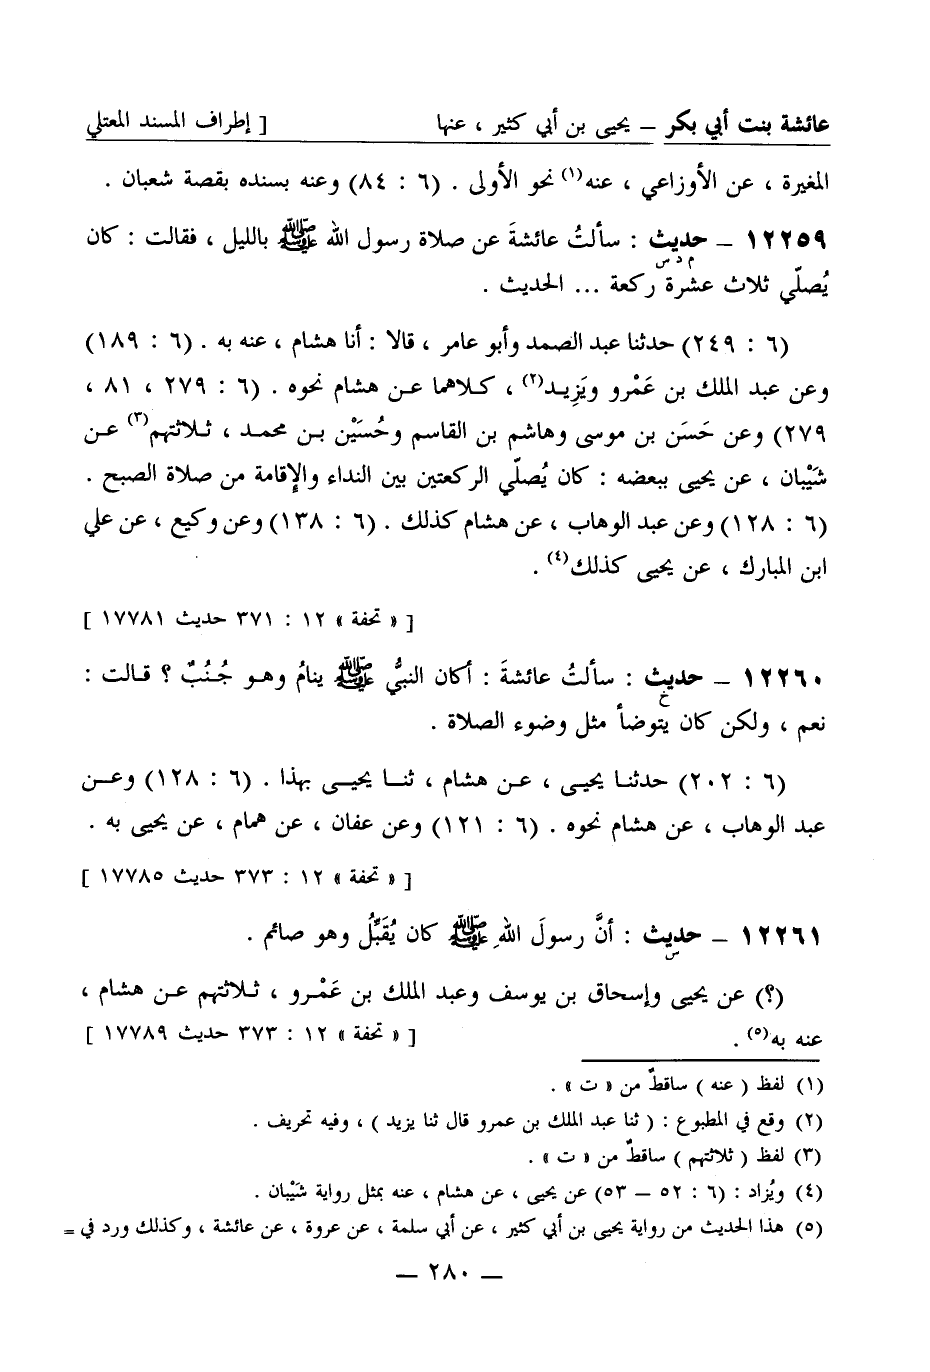 عائشة بنت أبي بكر – يحيى بن أبي كثير ، عنها [ إطراف المسند المعتلي
المغيرة ، عن الأوزاعي ، عنه(١) نحو الأولى . (٦ : ٨٤) وعنه بسنده بقصة شعبان .
١٢٢٥٩ – حديث : سألتُ عائشةَ عن صلاة رسول الله ﷺ بالليل ، فقالت : كان
م د س
يُصلّي ثلاث عشرة ركعة ... الحديث .
(٦ : ٢٤٩) حدثنا عبد الصمد وأبو عامر ، قالا : أنا هشام ، عنه به . (٦ : ١٨٩)
وعن عبد الملك بن عَمْرو ويَزيد(٢) ، كلاهما عن هشام نحوه . (٦ : ٢٧٩ ، ٨١ ،
٢٧٩) وعن حَسَن بن موسى وهاشم بن القاسم وحُسَيْن بن محمد ، ثلاثتهم(٣) عن
شَيْبان ، عن يحيى ببعضه : كان يُصلّي الركعتين بين النداء والإقامة من صلاة الصبح .
(٦ : ١٢٨) وعن عبد الوهاب ، عن هشام كذلك . (٦ : ١٣٨) وعن وكيع ، عن علي
ابن المبارك ، عن يحيى كذلك(٤) .
[ « تحفة » ١٢ : ٣٧١ حديث ١٧٧٨١ ]
١٢٢٦٠ – حديث : سألتُ عائشةَ : أكان النبيُّ ﷺ ينامُ وهو جُنُبٌ ؟ قالت :
خ
نعم ، ولكن كان يتوضأ مثل وضوء الصلاة .
(٦ : ٢٠٢) حدثنا يحيى ، عن هشام ، ثنا يحيى بهذا . (٦ : ١٢٨) وعن
عبد الوهاب ، عن هشام نحوه . (٦ : ١٢١) وعن عفان ، عن همام ، عن يحيى به .
[ « تحفة » ١٢ : ٣٧٣ حديث ١٧٧٨٥ ]
١٢٢٦١ – حديث : أنَّ رسولَ اللهِ ﷺ كان يُقَبِّلُ وهو صائم .
س
(؟) عن يحيى وإسحاق بن يوسف وعبد الملك بن عَمْرو ، ثلاثتهم عن هشام ،
عنه به(٥) . [ « تحفة » ١٢ : ٣٧٣ حديث ١٧٧٨٩ ]
(١) لفظ ( عنه ) ساقطٌ من « ت » .
(٢) وقع في المطبوع : ( ثنا عبد الملك بن عمرو قال ثنا يزيد ) ، وفيه تحريف .
(٣) لفظ ( ثلاثتهم ) ساقطٌ من « ت » .
(٤) ويُزاد : (٦ : ٥٢ – ٥٣) عن يحيى ، عن هشام ، عنه بمثل رواية شَيْبان .
(٥) هذا الحديث من رواية يحيى بن أبي كثير ، عن أبي سلمة ، عن عروة ، عن عائشة ، وكذلك ورد في =
– ٢٨٠ –